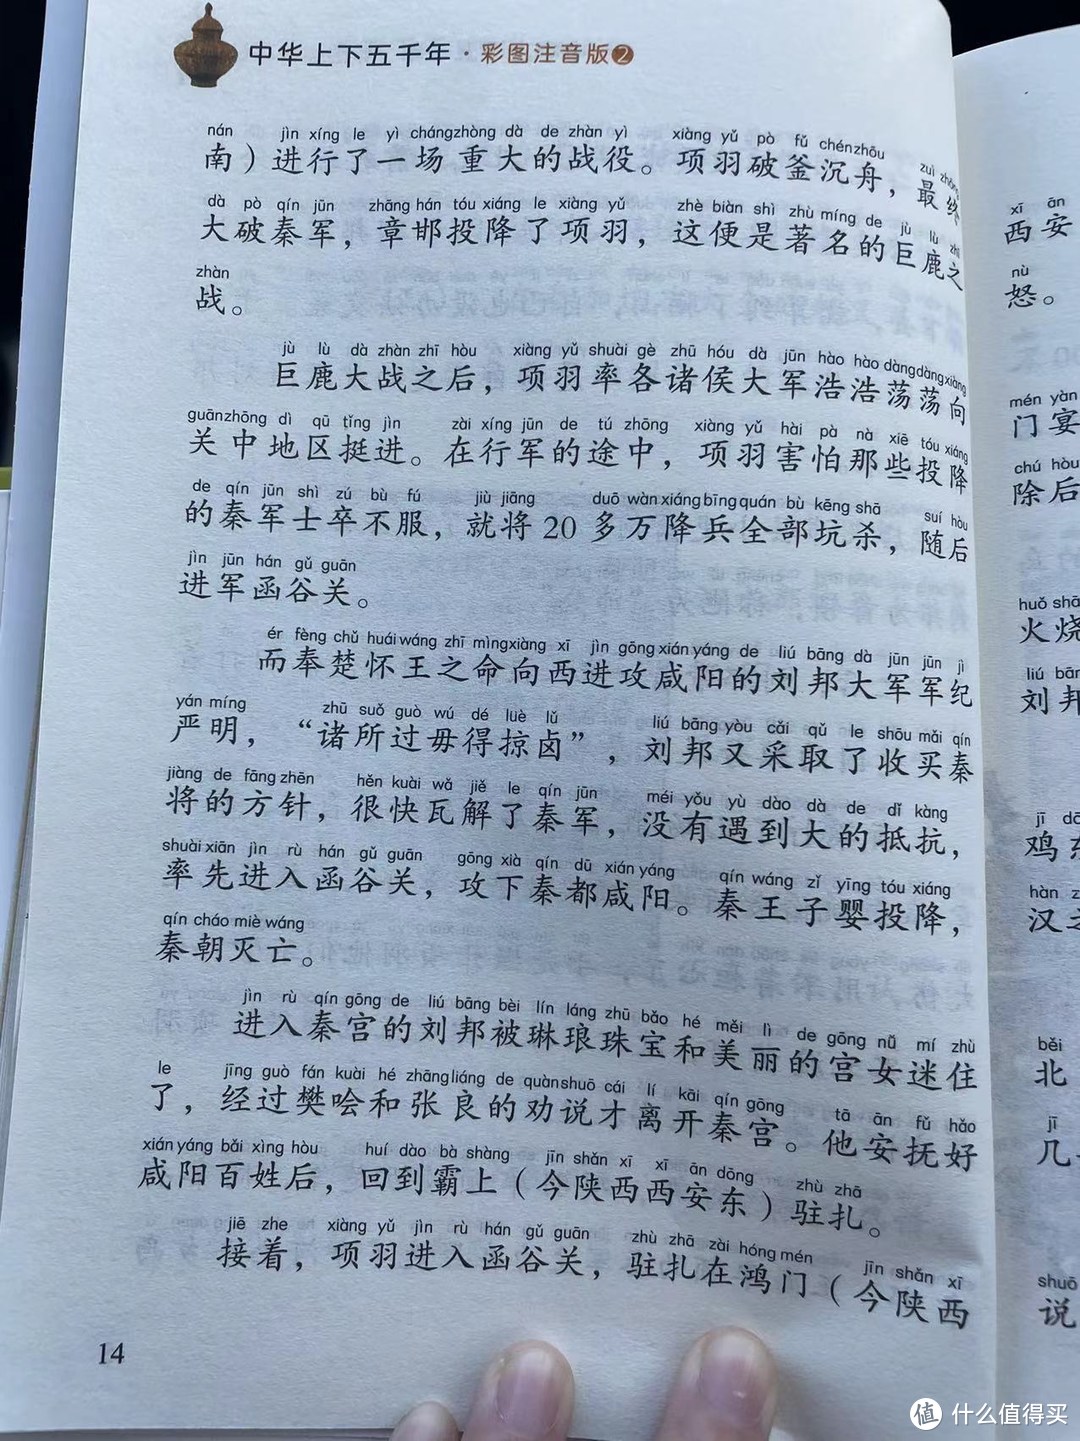 中华上下五千年·彩图注音版❷
nán jìn xíng le yì chángzhòng dà de zhàn yì xiàng yǔ pò fǔ chénzhōu zuì zhōng
南）进行了一场重大的战役。项羽破釜沉舟，最终
dà pò qín jūn zhāng hán tóu xiáng le xiàng yǔ zhè biàn shì zhù míng de jù lù zhī
大破秦军，章邯投降了项羽，这便是著名的巨鹿之
zhàn
战。
jù lù dà zhàn zhī hòu xiàng yǔ shuài gè zhū hóu dà jūn hào hào dàngdàngxiàng
巨鹿大战之后，项羽率各诸侯大军浩浩荡荡向
guānzhōng dì qū tǐng jìn zài xíng jūn de tú zhōng xiàng yǔ hài pà nà xiē tóu xiáng
关中地区挺进。在行军的途中，项羽害怕那些投降
de qín jūn shì zú bù fú jiù jiāng duō wàn xiáng bīng quán bù kēng shā suí hòu
的秦军士卒不服，就将20多万降兵全部坑杀，随后
jìn jūn hán gǔ guān
进军函谷关。
ér fèng chǔ huái wáng zhī mìngxiàng xī jìn gōng xián yáng de liú bāng dà jūn jūn jì
而奉楚怀王之命向西进攻咸阳的刘邦大军军纪
yán míng zhū suǒ guò wú dé lüè lǔ liú bāng yòu cǎi qǔ le shōu mǎi qín
严明，“诸所过毋得掠卤”，刘邦又采取了收买秦
jiàng de fāng zhēn hěn kuài wǎ jiě le qín jūn méi yǒu yù dào dà de dǐ kàng
将的方针，很快瓦解了秦军，没有遇到大的抵抗，
shuài xiān jìn rù hán gǔ guān gōng xià qín dū xián yáng qín wáng zǐ yīng tóu xiáng
率先进入函谷关，攻下秦都咸阳。秦王子婴投降，
qín cháo miè wáng
秦朝灭亡。
jìn rù qín gōng de liú bāng bèi lín láng zhū bǎo hé měi lì de gōng nǚ mí zhù
进入秦宫的刘邦被琳琅珠宝和美丽的宫女迷住
le jīng guò fán kuài hé zhāng liáng de quàn shuō cái lí kāi qín gōng tā ān fǔ hǎo
了，经过樊哙和张良的劝说才离开秦宫。他安抚好
xián yáng bǎi xìng hòu huí dào bà shàng jīn shǎn xī xī ān dōng zhù zhā
咸阳百姓后，回到霸上（今陕西西安东）驻扎。
jiē zhe xiàng yǔ jìn rù hán gǔ guān zhù zhā zài hóng mén jīn shǎn xī
接着，项羽进入函谷关，驻扎在鸿门（今陕西
14
xī ān
西安
nù
怒。
mén yàn
门宴
chú hòu
除后
huǒ shāo
火烧
liú bāng
刘邦
jī
鸡
hàn
汉
běi
北
jǐ
几
shuō
说
值 什么值得买